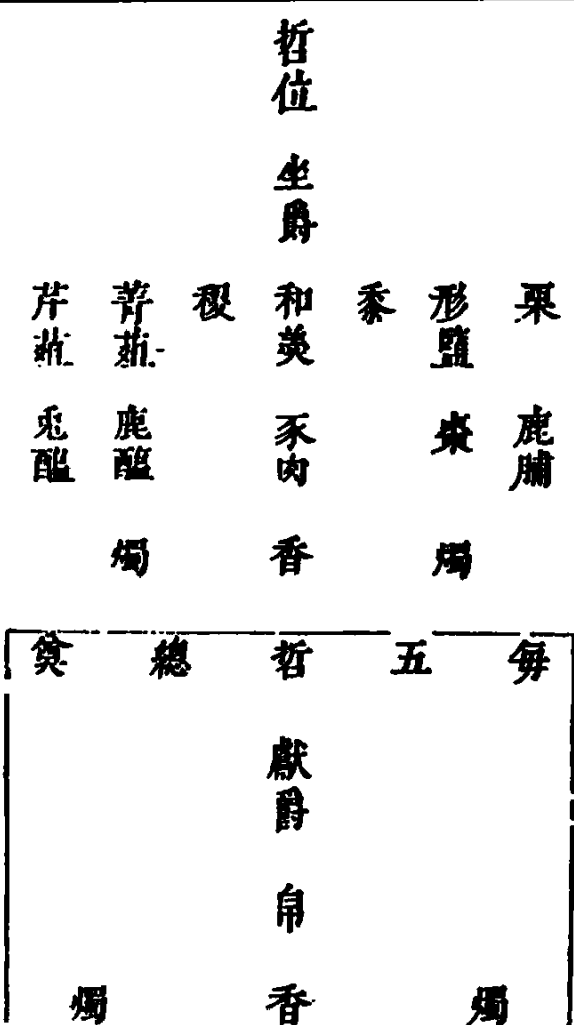 哲位
坐爵
栗
形鹽
黍
和羹
稷
菁菹
芹菹
鹿脯
棗
豕肉
鹿醢
兎醢
燭
香
燭
每五哲總奠
獻爵
帛
燭
香
燭